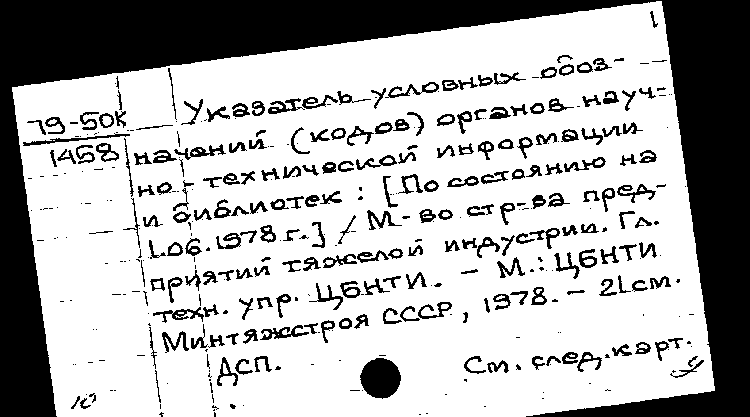 1
79-50к
1458
Указатель условных обоз-
начений (кодов) органов науч-
но-технической информации
и библиотек : [По состоянию на
1.06.1978 г.] / М-во стр-ва пред-
приятий тяжелой индустрии. Гл.
техн. упр. ЦБНТИ. – М.: ЦБНТИ
Минтяжстроя СССР, 1978. – 21 см.
ДСП.
См. след. карт.